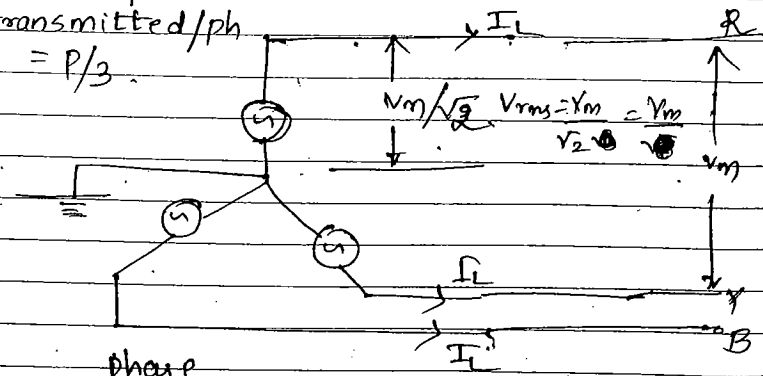 ransmitted/ph
= P/3.
I_L
R
Vm/√2
Vrms = Vm/√2 = Vm/√
Vm
I_L
Y
I_L
B
phase